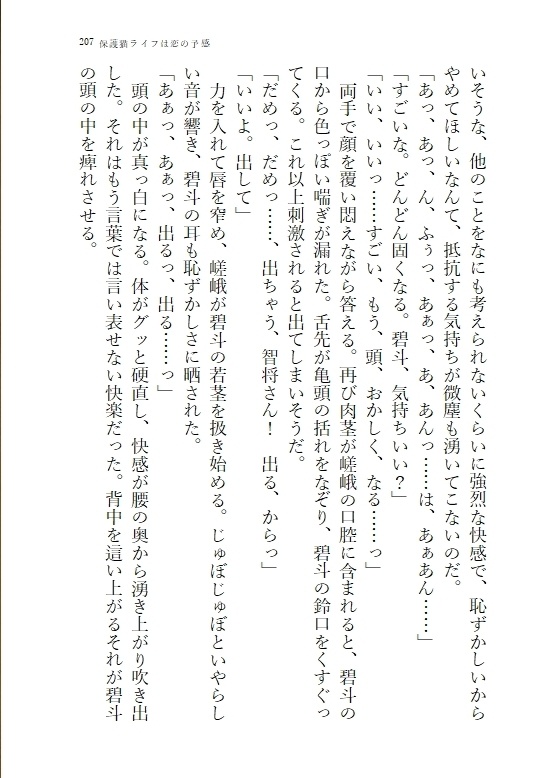 207 保護猫ライフは恋の予感
いそうな、他のことをなにも考えられないくらいに強烈な快感で、恥ずかしいから
やめてほしいなんて、抵抗する気持ちが微塵も湧いてこないのだ。
「あっ、あっ、ん、ふぅっ、あぁっ、あ、あんっ……は、あぁあん……」
「すごいな。どんどん固くなる。碧斗、気持ちいい？」
「いい、いいっ……すごい、もう、頭、おかしく、なる……っ」
両手で顔を覆い悶えながら答える。再び肉茎が嵯峨の口腔に含まれると、碧斗の
口から色っぽい喘ぎが漏れた。舌先が亀頭の括れをなぞり、碧斗の鈴口をくすぐっ
てくる。これ以上刺激されると出てしまいそうだ。
「だめっ、だめっ……、出ちゃう、智将さん！　出る、からっ」
「いいよ。出して」
力を入れて唇を窄め、嵯峨が碧斗の若茎を扱き始める。じゅぼじゅぼといやらし
い音が響き、碧斗の耳も恥ずかしさに晒された。
「あぁっ、あぁっ、出るっ、出る……っ」
頭の中が真っ白になる。体がグッと硬直し、快感が腰の奥から湧き上がり吹き出
した。それはもう言葉では言い表せない快楽だった。背中を這い上がるそれが碧斗
の頭の中を痺れさせる。